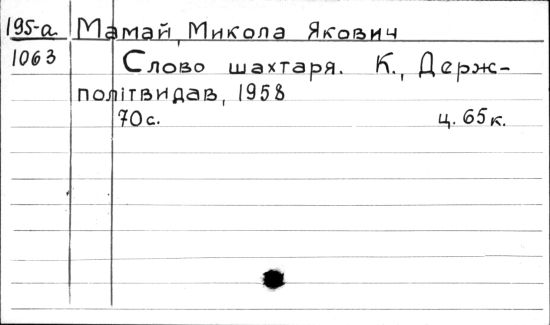 195-а Мамай, Микола Якович
1063 Слово шахтаря. К., Держ-
політвидав, 1958
70с. ц. 65к.